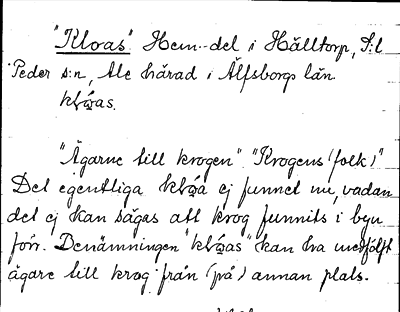 "Kloas" Hem.-del i Hålltorp, S:t
Peder s:n, Ale härad i Älfsborgs län
"Ägarne till krogen" "Krogens (folk)"
Det egentliga ej funnet nu, vadan
det ej kan sägas att krog funnits i byn
förr. Benämningen kan ha medföljt
ägare till krog från (på) annan plats.